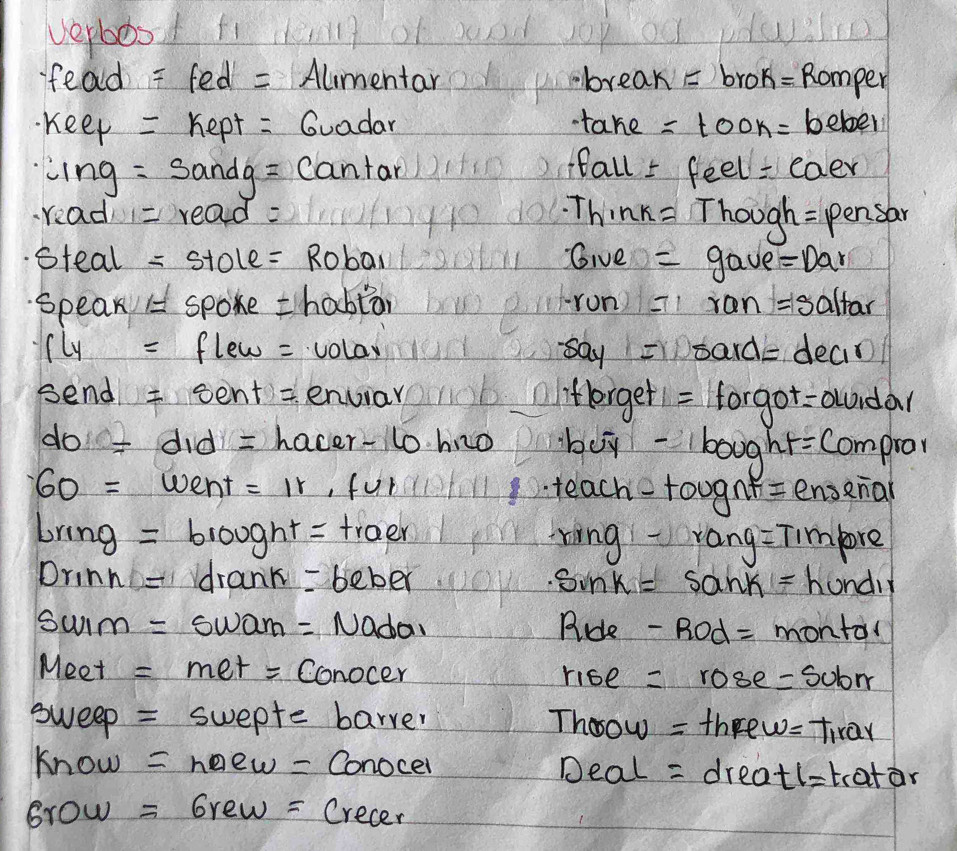 verbos
·fead = fed = Alimentar
·Keep = Kept = Guadar
·cing = Sandg = Cantar
·read = read =
·Steal = stole = Robar
·speak = spoke = hablar
·fly = flew = volar
send = sent = enviar
do = did = hacer - lo hizo
·Go = went = ir, fui
bring = brought = traer
Drink = drank = beber
Swim = swam = Nadar
Meet = met = Conocer
Sweep = swept = barrer
Know = naew = Conocer
Grow = Grew = Crecer
·break = brok = Romper
·take = took = beber
·fall = feel = caer
·Think = Though = pensar
·Give = gave = Dar
·run = ran = saltar
·say = said = decir
·florget = forgot = olvidar
·buy - bought = Comprar
·teach - tought = enseñar
·ring - rang = Timbre
·Sink = Sank = hundir
Ride - Rod = montar
rise = rose = Subir
Thoow = threw = Tirar
Deal = dreatl = tratar